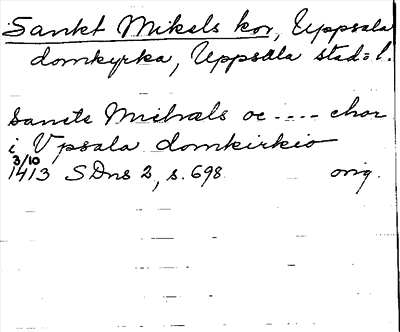 Sankt Mikels kor, Uppsala
domkyrka, Uppsala stad=l.
Sancte Michæls oc ---- chor
i Vpsala domkirkio
3/10
1413 SDns 2, s. 698. orig.